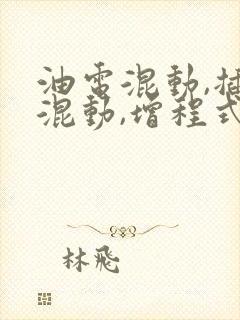 油電混動,插
混動,增程式
林飛